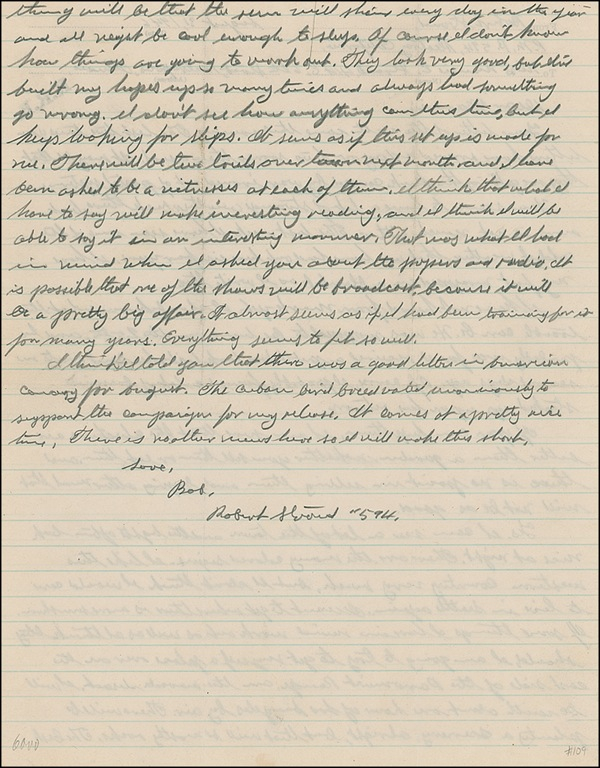 thing will be that the sun will shine every day in the year
and all night be cool enough to sleep. Of course I don't know
how things are going to work out. They look very good, but I've
built my hopes up so many times and always had something
go wrong. I don't see how anything can this time, but I
keep looking for slips. It seems as if this set up is made for
me. There will be two trails over town next month, and I have
been asked to be a witnesses at each of them. I think that what I
have to say will make interesting reading, and I think I will be
able to say it in an interesting manner. That was what I had
in mind when I asked you about the papers and radio. It
is possible that one of the shows will be broadcast, because it will
be a pretty big affair. It almost seems as if I had been training for it
for many years. Everything seems to fit so well.
I think I told you that there was a good letter in American
Canary for August. The Cuban bird breed voted unanimously to
support the campaign for my release. It comes at a pretty nice
time. There is no other news here so I will make this short.
Love,
Bob.
Robert Stroud #594.
#109